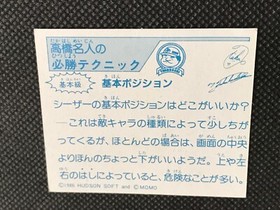 高橋名人の
必勝テクニック
基本編
基本ポジション
シーザーの基本ポジションはどこがいいか?
―これは敵キャラの種類によって少しちが
ってくるが、ほとんどの場合は、画面の中央
よりほんのちょっと下がいいようだ。上や左
右のはしによっていると、危険なことが多い。
©1986 HUDSON SOFT and ©MOMO